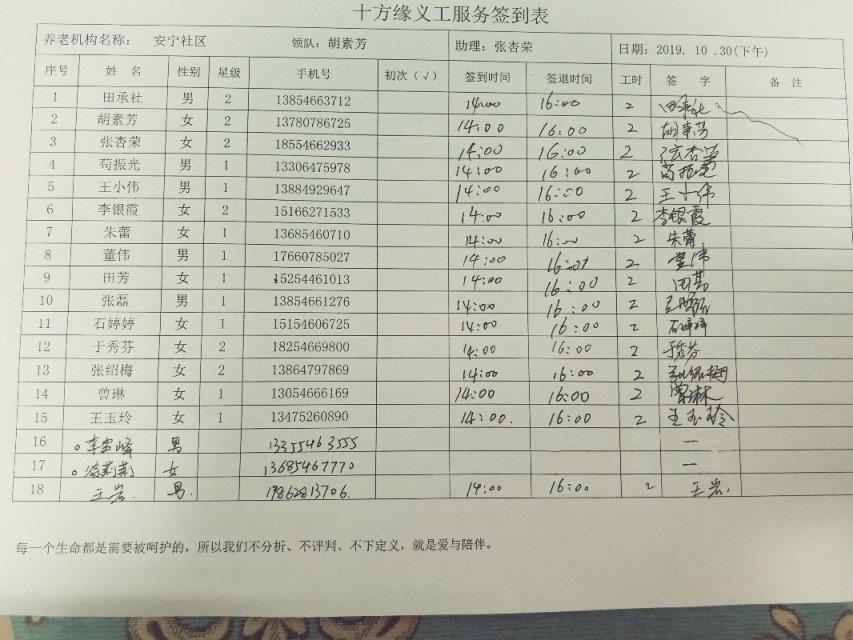 十方缘义工服务签到表
养老机构名称: 安宁社区 领队: 胡素芳 助理: 张杏荣 日期: 2019. 10 .30(下午)
序号 姓 名 性别 星级 手机号 初次（√） 签到时间 签退时间 工时 签 字 备 注
1 田承社 男 2 13854663712 14:00 16:00 2 田承社
2 胡素芳 女 2 13780786725 14:00 16:00 2 胡素芳
3 张杏荣 女 2 18554662933 14:00 16:00 2 张杏荣
4 苟振光 男 1 13306475978 14:00 16:00 2 苟振光
5 王小伟 男 1 13884929647 14:00 16:00 2 王小伟
6 李银霞 女 2 15166271533 14:00 16:00 2 李银霞
7 朱蕾 女 1 13685460710 14:00 16:00 2 朱蕾
8 董伟 男 1 17660785027 14:00 16:00 2 董伟
9 田芳 女 1 15254461013 14:00 16:00 2 田芳
10 张磊 男 1 13854661276 14:00 16:00 2
11 石婷婷 女 1 15154606725 14:00 16:00 2 石婷婷
12 于秀芬 女 2 18254669800 14:00 16:00 2 于秀芬
13 张绍梅 女 2 13864797869 14:00 16:00 2 张绍梅
14 曾琳 女 1 13054666169 14:00 16:00 2 曾琳
15 王玉玲 女 1 13475260890 14:00. 16:00 2 王玉玲
16 男 13355463555 —
17 女 13685467770 —
18 王岩. 男. 19862813706. 14:00 16:00 2 王岩.
每一个生命都是需要被呵护的，所以我们不分析、不评判、不下定义，就是爱与陪伴。